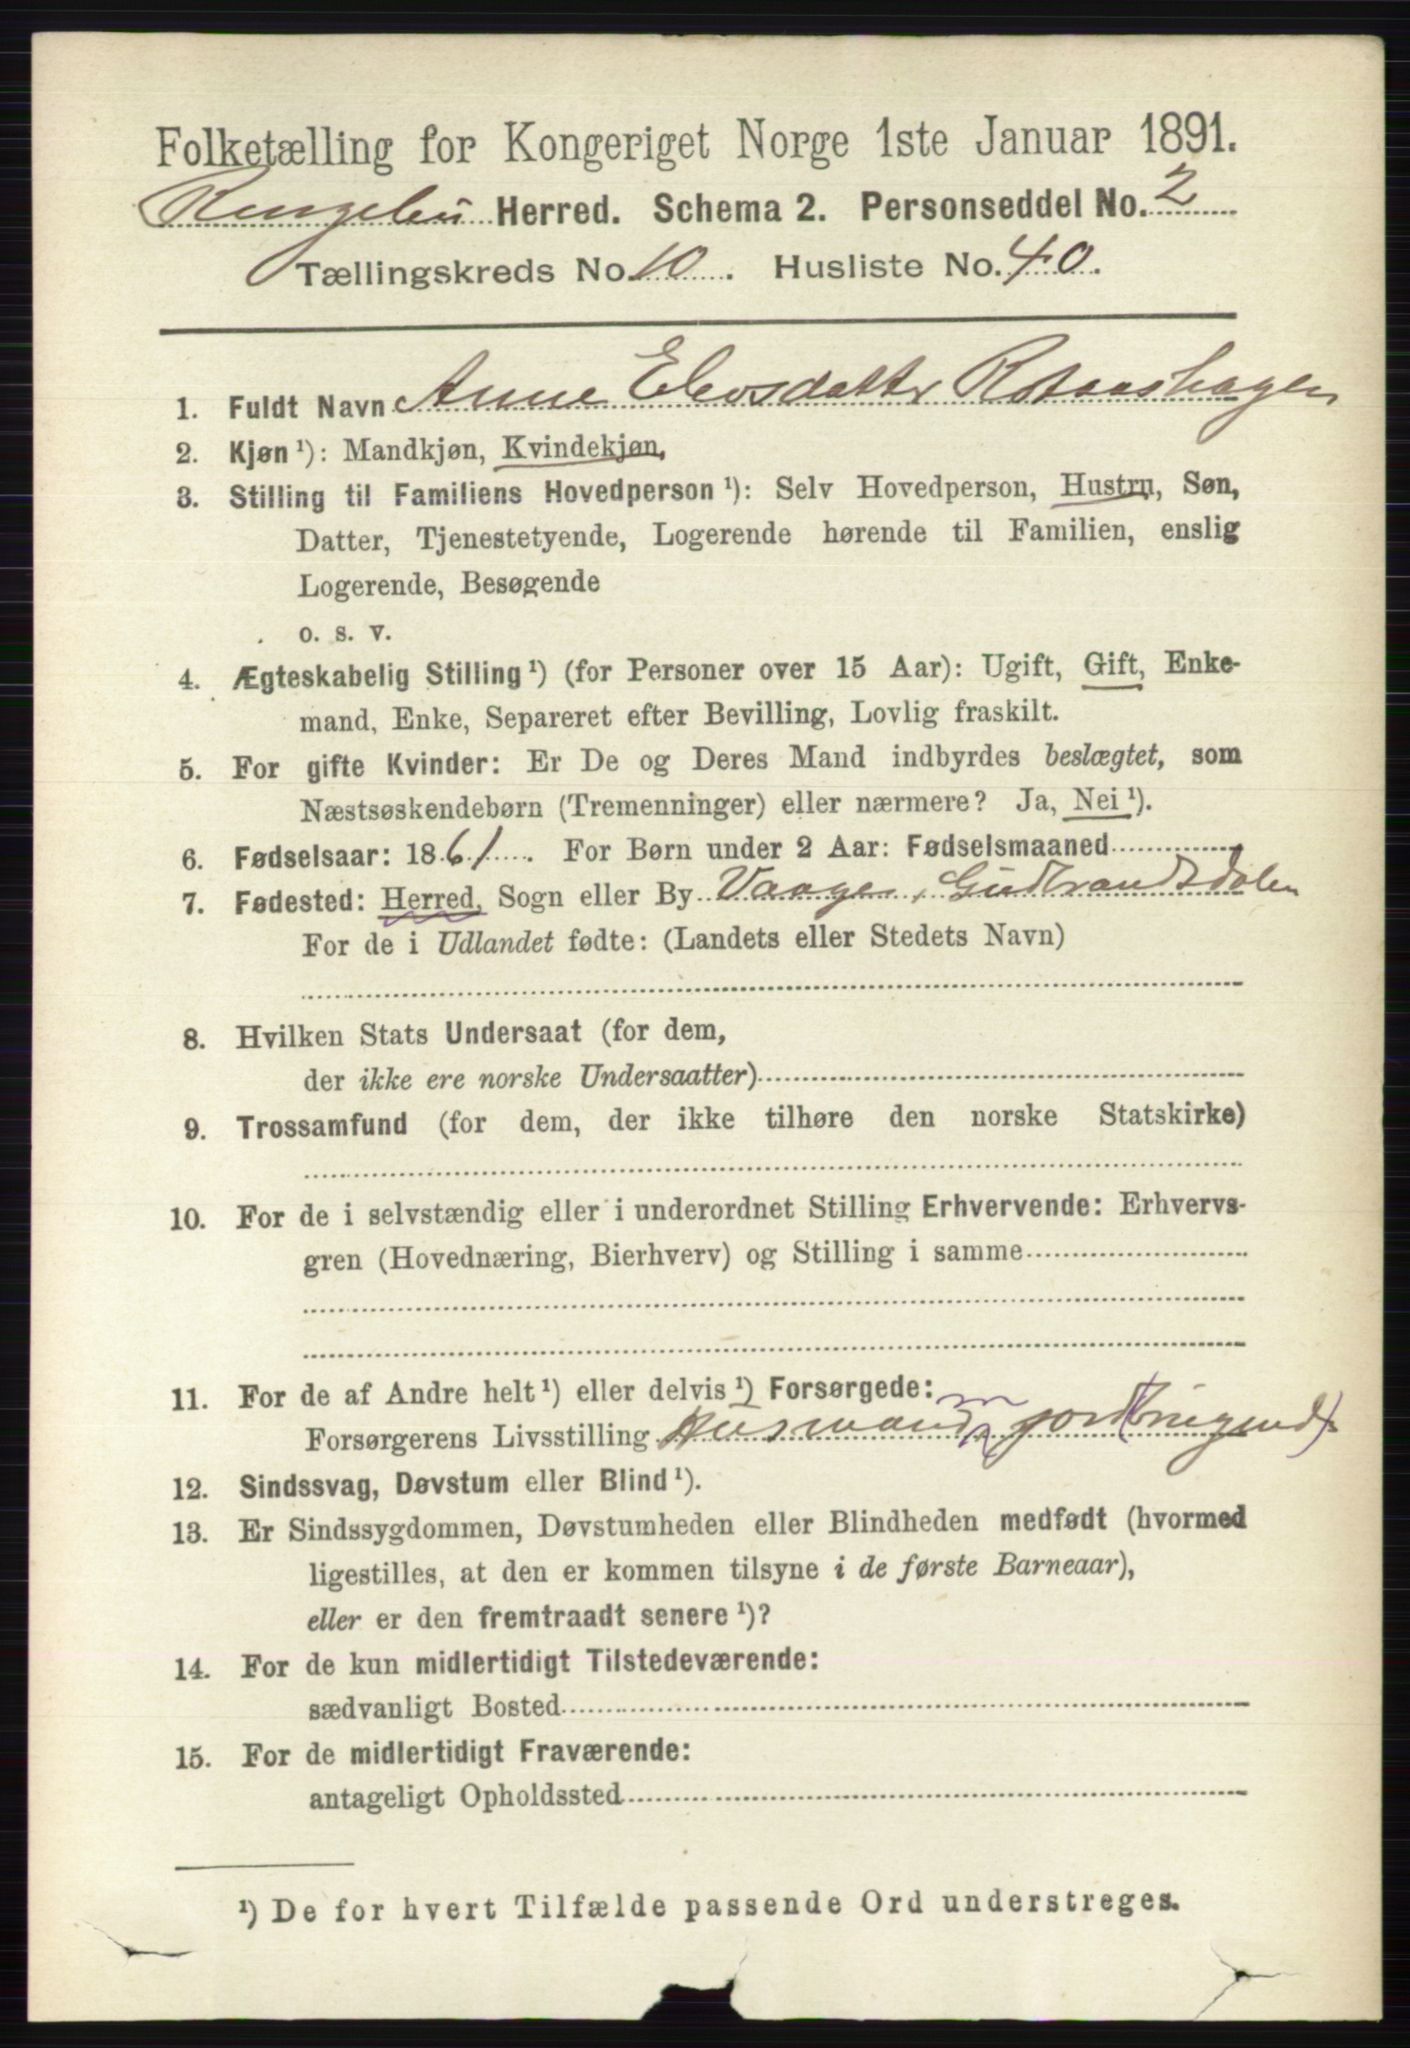 Folketælling for Kongeriget Norge 1ste Januar 1891.
Ringebu Herred. Schema 2. Personseddel No. 2
Tællingskreds No. 10. Husliste No. 40.
1. Fuldt Navn Anne
2. Kjøn ¹): Mandkjøn, Kvindekjøn.
3. Stilling til Familiens Hovedperson ¹): Selv Hovedperson, Hustru, Søn,
Datter, Tjenestetyende, Logerende hørende til Familien, enslig
Logerende, Besøgende
o. s. v.
4. Ægteskabelig Stilling ¹) (for Personer over 15 Aar): Ugift, Gift, Enke-
mand, Enke, Separeret efter Bevilling, Lovlig fraskilt.
5. For gifte Kvinder: Er De og Deres Mand indbyrdes beslægtet, som
Næstsøskendebørn (Tremenninger) eller nærmere? Ja, Nei ¹).
6. Fødselsaar: 1861. For Børn under 2 Aar: Fødselsmaaned
7. Fødested: Herred, Sogn eller By Vaage, Gudbrandsdalen
For de i Udlandet fødte: (Landets eller Stedets Navn)
8. Hvilken Stats Undersaat (for dem,
der ikke ere norske Undersaatter)
9. Trossamfund (for dem, der ikke tilhøre den norske Statskirke)
10. For de i selvstændig eller i underordnet Stilling Erhvervende: Erhvervs-
gren (Hovednæring, Bierhverv) og Stilling i samme
11. For de af Andre helt ¹) eller delvis ¹) Forsørgede:
Forsørgerens Livsstilling Husmand
12. Sindssvag, Døvstum eller Blind ¹).
13. Er Sindssygdommen, Døvstumheden eller Blindheden medfødt (hvormed
ligestilles, at den er kommen tilsyne i de første Barneaar),
eller er den fremtraadt senere ¹)?
14. For de kun midlertidigt Tilstedeværende:
sædvanligt Bosted
15. For de midlertidigt Fraværende:
antageligt Opholdssted
¹) De for hvert Tilfælde passende Ord understreges.